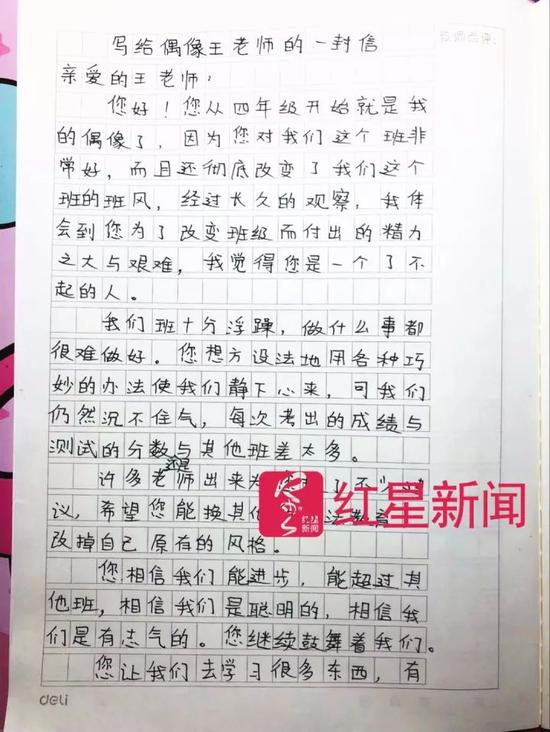 教师点评:
写给偶像王老师的一封信
亲爱的王老师:
您好!您从四年级开始就是我
的偶像了,因为您对我们这个班非
常好,而且还彻底改变了我们这个
班的班风,经过长久的观察,我体
会到您为了改变班级而付出的精力
之大与艰难,我觉得您是一个了不
起的人。
我们班十分浮躁,做什么事都
很难做好。您想方设法地用各种巧
妙的办法使我们静下心来,可我们
仍然沉不住气,每次考出的成绩与
测试的分数与其他班差太多。
还是
许多老师出来为了不少
议,希望您能换其他教育
改掉自己原有的风格。
红星新闻
红星
新闻
您相信我们能进步,能超过其
他班,相信我们是聪明的,相信我
们是有志气的。您继续鼓舞着我们。
您让我们去学习很多东西,有
deli